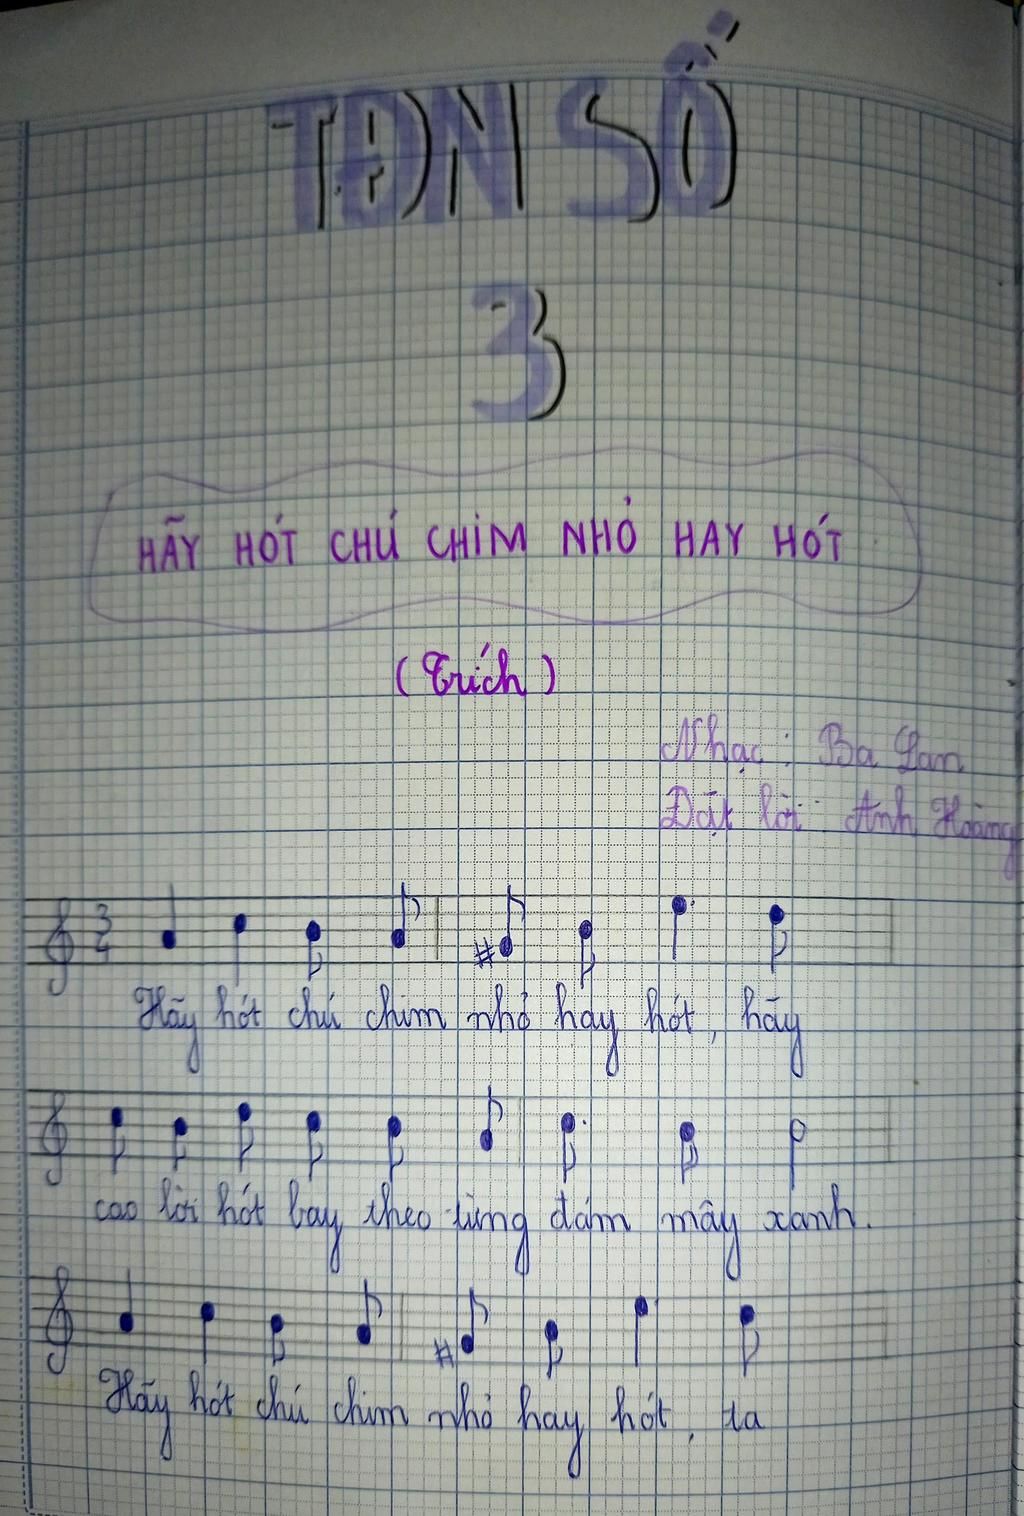 TĐN SỐ
3
HÃY HÓT CHÚ CHIM NHỎ HAY HÓT
(Trích)
Nhạc: Ba Lan
Đặt lời: Anh Hoàng
3
4
Hãy hót chú chim nhỏ hay hót, hãy
cao lời hót bay theo từng đám mây xanh.
Hãy hót chú chim nhỏ hay hót, ta